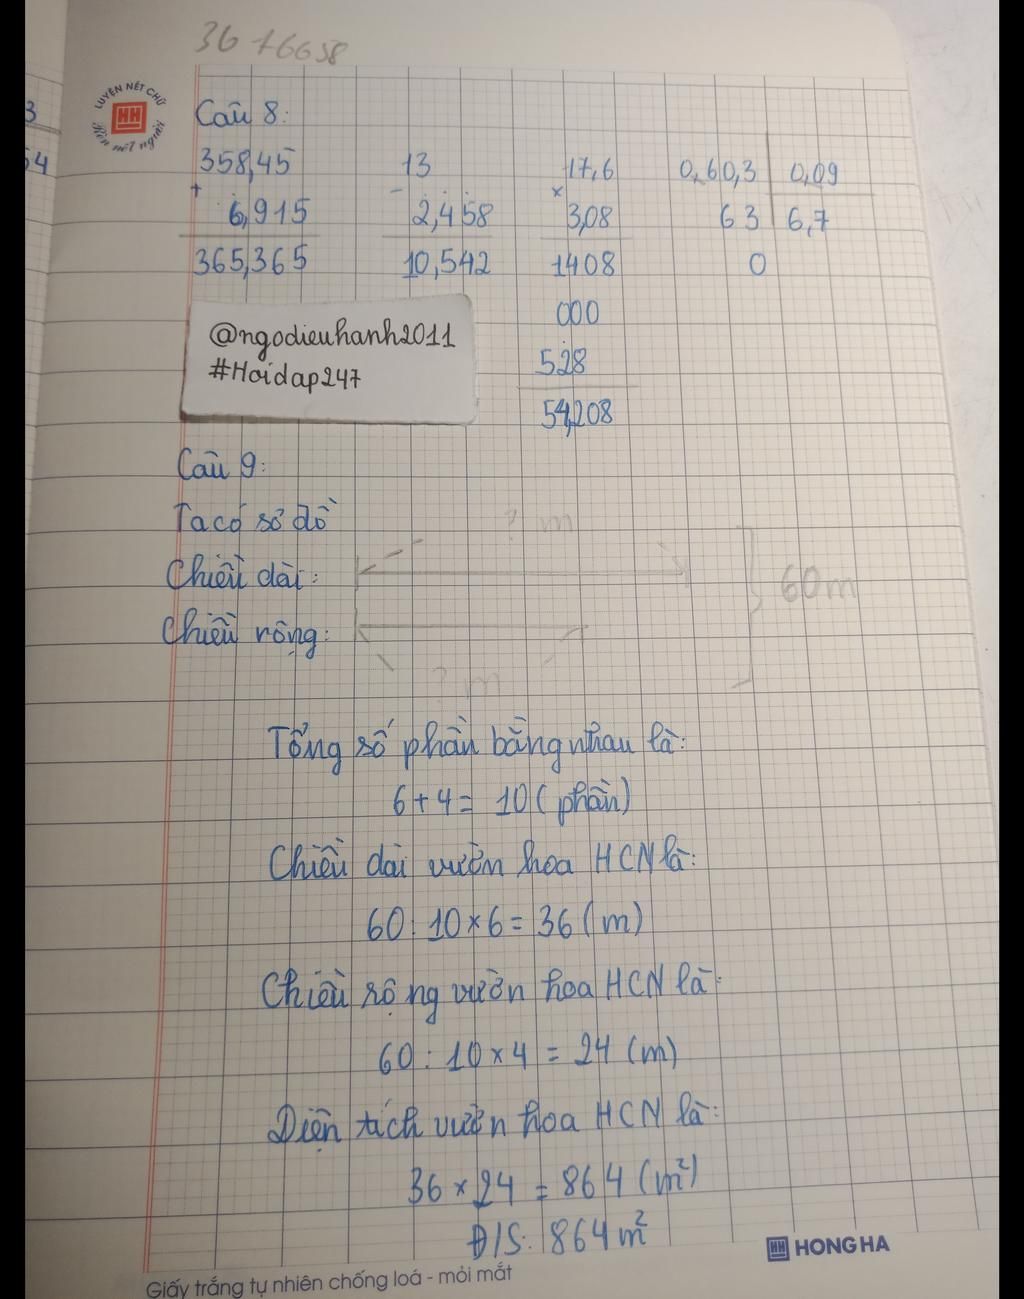 36 76658
LUYỆN NÉT CHỮ
HH
Rèn nết người
3
54
Câu 8:
358,45
+
6,915
365,365
13
-
2,458
10,542
17,6
×
3,08
1408
000
528
54,208
0,60,3 0,09
63 6,7
0
@ngodieuhanh2011
#Hoidap247
Câu 9:
Ta có sơ đồ
? m
Chiều dài:
60m
Chiều rộng:
? m
Tổng số phần bằng nhau là:
6+4= 10 (phần)
Chiều dài vườn hoa HCN là:
60 : 10 × 6 = 36 (m)
Chiều rộng vườn hoa HCN là:
60 : 10 × 4 = 24 (m)
Diện tích vườn hoa HCN là:
36 × 24 = 864 (m²)
Đ/S: 864 m²
HH HONG HA
Giấy trắng tự nhiên chống loá - mỏi mắt